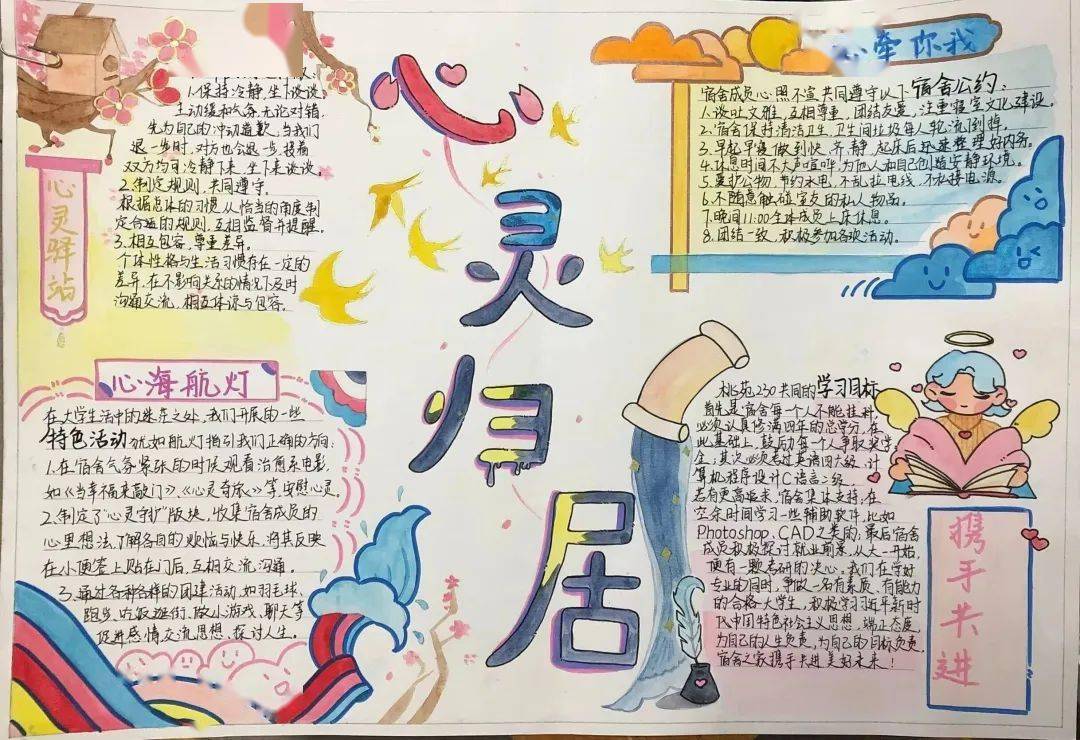 心灵归居
心灵驿站
1.保持冷静,坐下谈谈。
主动缓和气氛,无论对错,
先为自己的冲动道歉,当我们
退一步时,对方也会退一步,接着
双方均可冷静下来,坐下来谈谈。
2.制定规则,共同遵守。
根据总体的习惯,从恰当的角度制
定合适的规则,互相监督并提醒。
3.相互包容,尊重差异。
个体性格与生活习惯存在一定的
差异,在不影响关系的情况下及时
沟通交流,相互体谅与包容。
心牵你我
宿舍成员心照不宣共同遵守以下宿舍公约:
1.谈吐文雅,互相尊重,团结友爱,注重寝室文化建设。
2.宿舍保持清洁卫生,卫生间垃圾每人轮流倒掉。
3.早起早寝做到快、齐、静,起床后快速整理好内务。
4.休息时间不大声喧哗,为他人和自己创造安静环境。
5.爱护公物,节约水电,不乱拉电线,不私接电源。
6.不随意触碰室友的私人物品。
7.晚间11:00全体成员上床休息。
8.团结一致,积极参加各项活动。
心海航灯
在大学生活中的迷茫之处,我们开展的一些
特色活动犹如航灯指引我们正确的方向:
1.在宿舍气氛紧张的时候,观看治愈系电影,
如《当幸福来敲门》、《心灵奇旅》等,安慰心灵。
2.制定了“心灵守护”版块,收集宿舍成员的
心里想法,了解各自的烦恼与快乐,将其反映
在小便签上贴在门后,互相交流沟通。
3.通过各种各样的团建活动,如羽毛球、
跑步、吃饭逛街、做小游戏、聊天等
促进感情交流思想,探讨人生。
桃苑230共同的学习目标
首先是宿舍每个人不能挂科,
必须认真修满四年的总学分,在
此基础上,鼓励每一个人争取奖学
金,其次必须考过英语四六级、计
算机程序设计C语言二级。
若有更高追求,宿舍集体支持,在
空余时间学习一些辅助软件,比如
Photoshop、CAD之类的;最后宿舍
成员积极探讨就业前景,从大一开始,
便有一颗考研的决心。我们在学好
专业的同时,争做一名有素质、有能力
的合格大学生,积极学习习近平新时
代中国特色社会主义思想,端正态度,
为自己的人生负责,为自己的目标负责,
宿舍之家携手共进美好未来!
携手共进